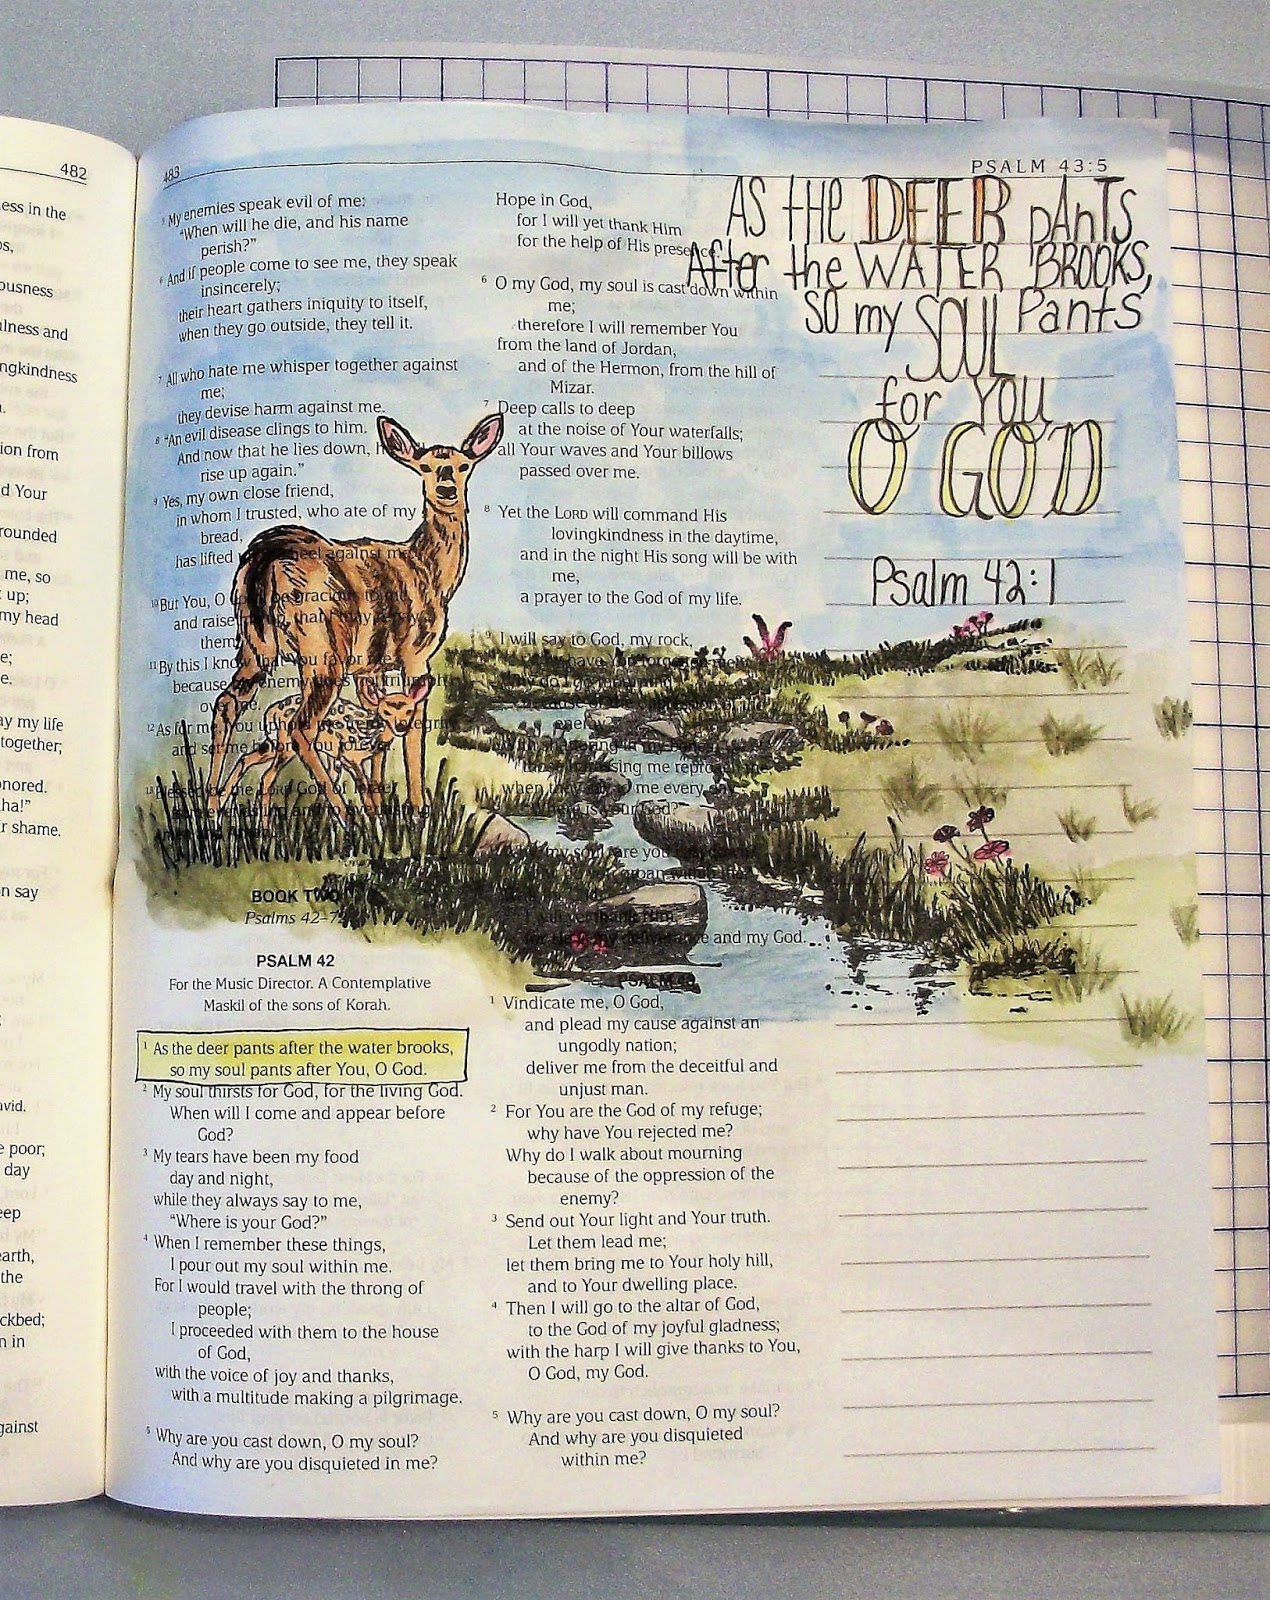 482
ess in the
os,
ousness
ulness and
ngkindness
ion from
d Your
rounded
me, so
up;
my head
e;
e.
ay my life
together;
onored.
ha!"
r shame.
n say
avid.
e poor;
day
eep
earth,
the
ckbed;
n in
gainst
483
PSALM 43:5
5 My enemies speak evil of me:
"When will he die, and his name
perish?"
6 And if people come to see me, they speak
insincerely;
their heart gathers iniquity to itself,
when they go outside, they tell it.
7 All who hate me whisper together against
me;
they devise harm against me.
8 "An evil disease clings to him.
And now that he lies down, he
rise up again."
9 Yes, my own close friend,
in whom I trusted, who ate of my
bread,
has lifted heel against me.
10 But You, O be gracious to me
and raise that I may
them
11 By this I know that You favor me
because my enemy does not triumph
over me.
12 As for me, You uphold me in my integrity
and set me before You forever.
13 Blessed be the LORD God of Israel
BOOK TWO
Psalms 42–72
PSALM 42
For the Music Director. A Contemplative
Maskil of the sons of Korah.
1 As the deer pants after the water brooks,
so my soul pants after You, O God.
2 My soul thirsts for God, for the living God.
When will I come and appear before
God?
3 My tears have been my food
day and night,
while they always say to me,
"Where is your God?"
4 When I remember these things,
I pour out my soul within me.
For I would travel with the throng of
people;
I proceeded with them to the house
of God,
with the voice of joy and thanks,
with a multitude making a pilgrimage.
5 Why are you cast down, O my soul?
And why are you disquieted in me?
Hope in God,
for I will yet thank Him
for the help of His presence.
6 O my God, my soul is cast down within
me;
therefore I will remember You
from the land of Jordan,
and of the Hermon, from the hill of
Mizar.
7 Deep calls to deep
at the noise of Your waterfalls;
all Your waves and Your billows
passed over me.
8 Yet the LORD will command His
lovingkindness in the daytime,
and in the night His song will be with
me,
a prayer to the God of my life.
9 I will say to God, my rock,
have You forgotten me
do I go mourning
because of the oppression of the
enemy
With shattering in my bones,
those harassing me reproach me
when they say to me every day
"Where is your God?"
my soul, are you
groan within
I will yet thank Him,
for He is my deliverance and my God.
PSALM 43
1 Vindicate me, O God,
and plead my cause against an
ungodly nation;
deliver me from the deceitful and
unjust man.
2 For You are the God of my refuge;
why have You rejected me?
Why do I walk about mourning
because of the oppression of the
enemy?
3 Send out Your light and Your truth.
Let them lead me;
let them bring me to Your holy hill,
and to Your dwelling place.
4 Then I will go to the altar of God,
to the God of my joyful gladness;
with the harp I will give thanks to You,
O God, my God.
5 Why are you cast down, O my soul?
And why are you disquieted
within me?
AS tHE DEER pAnTS
After the WATER BROOKS,
SO my SOUL Pants
for YOU
O GOD
Psalm 42:1